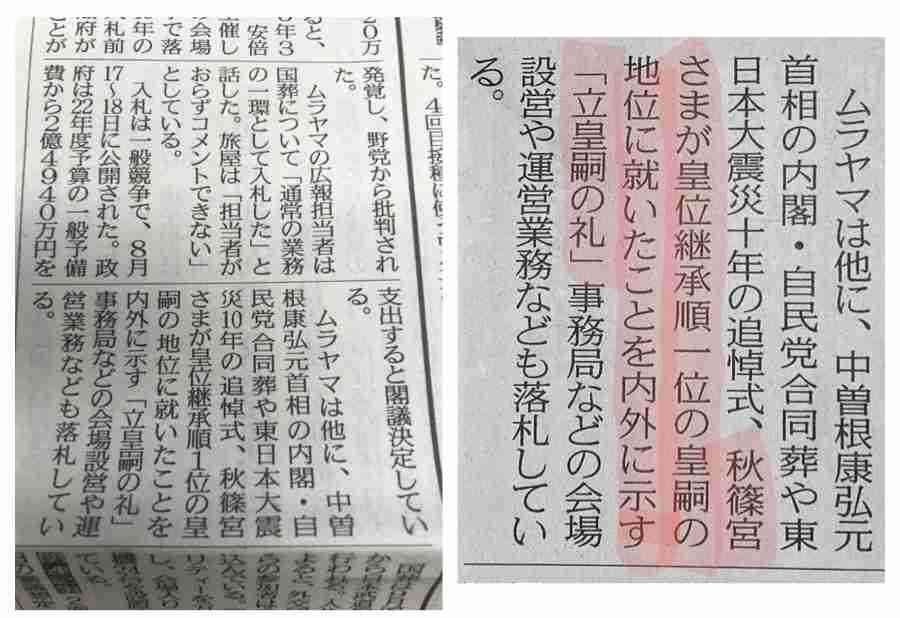 20万
ると、
年3
安倍
催し
会場
で落
年の
札前
府が
ことが
発覚し、野党から批判され
た。
ムラヤマの広報担当者は
国葬について「通常の業務
の一環として入札した」と
話した。旅屋は「担当者が
おらずコメントできない」
としている。
入札は一般競争で、8月
17〜18日に公開された。政
府は22年度予算の一般予備
費から2億4940万円を
支出すると閣議決定してい
る。
ムラヤマは他に、中曽
根康弘元首相の内閣・自
民党合同葬や東日本大震
災10年の追悼式、秋篠宮
さまが皇位継承順1位の皇
嗣の地位に就いたことを
内外に示す「立皇嗣の礼」
事務局などの会場設営や運
営業務なども落札してい
る。
ムラヤマは他に、中曽根康弘元
首相の内閣・自民党合同葬や東
日本大震災十年の追悼式、秋篠宮
さまが皇位継承順一位の皇嗣の
地位に就いたことを内外に示す
「立皇嗣の礼」事務局などの会場
設営や運営業務なども落札してい
る。